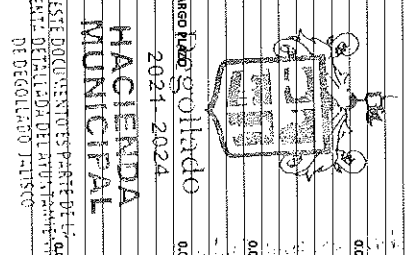 ARGO PLAZO
gollado
2021-2024
HACIENDA
MUNICIPAL
ESTE DOCUMENTO ES PARTE DE L
ENTA DETALLADA DEL AYUNTAMIENT
DE DEGOLLADO JALISCO
0.0
0.0
0.0
0.0